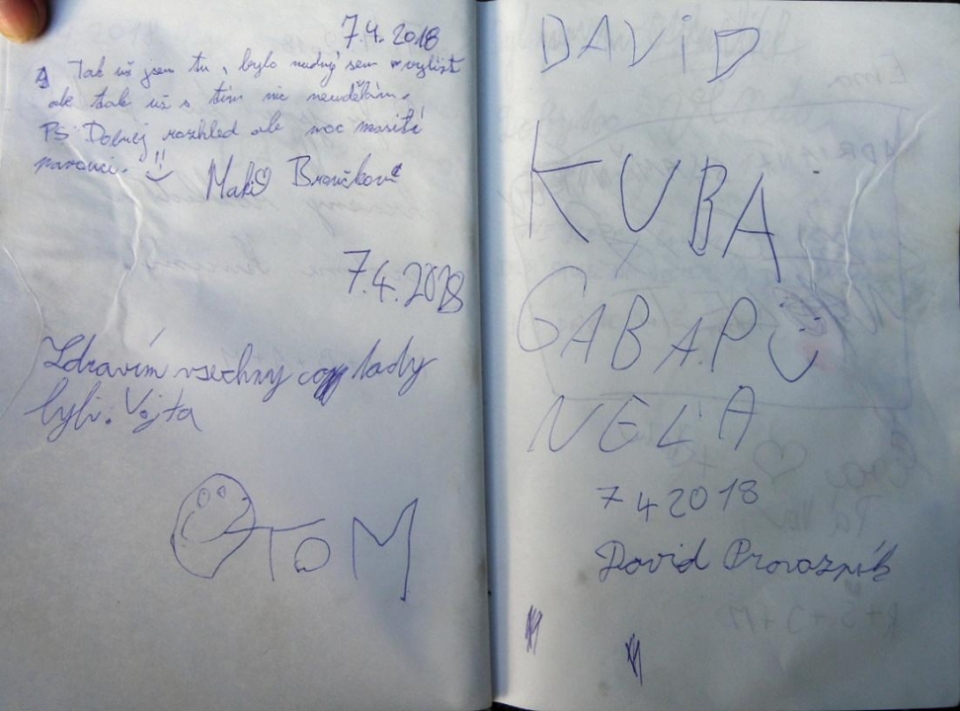 7.4. 2018
Tak už jsem tu, bylo nudný sem vylízt
ale tak už s tím nic neudělám.
PS Dobrej rozhled ale moc masití
pavouci.
7.4.2018
Zdravím všechny co tady
byli. Vojta
TOM
DAVID
KUBA
GABA.P
NELA
7 4 2018
David Provazník